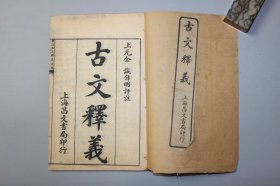 古文釋義
上海昌文書局印行
上元余誠自明評註
古文釋義
上海昌文書局印行